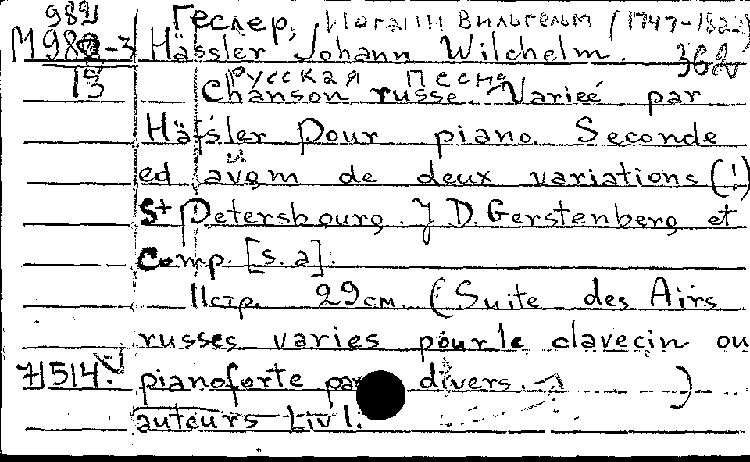 982 Геслер, Иоганн Вильгельм (1747-1822)
М 982-3 Hässler Johann Wilchelm. 362
Русская Песня
13 Chanson russe. Varieé par
Hässler Pour piano. Seconde
ed de deux variations (!)
St Petersbourg. J D. Gerstenberg et
Comp. [s. a].
11 стр. 29 см. (Suite des Airs
russes varies pour le clavecin ou
71514. pianoforte par divers )
auteurs Liv 1.